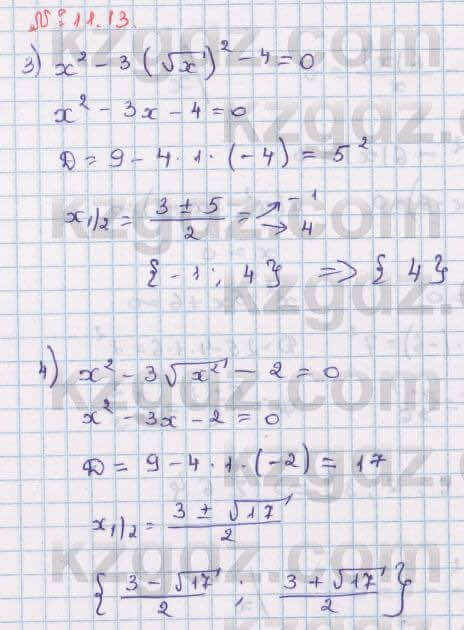 № 11.13.
3) x² - 3(√x)² - 4 = 0
x² - 3x - 4 = 0
D = 9 - 4 · 1 · (-4) = 5²
x₁/₂ = (3 ± 5)/2 = ↗ -1 → 4
{-1; 4} => {4}
4) x² - 3√x² - 2 = 0
x² - 3x - 2 = 0
D = 9 - 4 · 1 · (-2) = 17
x₁/₂ = (3 ± √17)/2
{(3 - √17)/2 ; (3 + √17)/2}
kzgdz.com